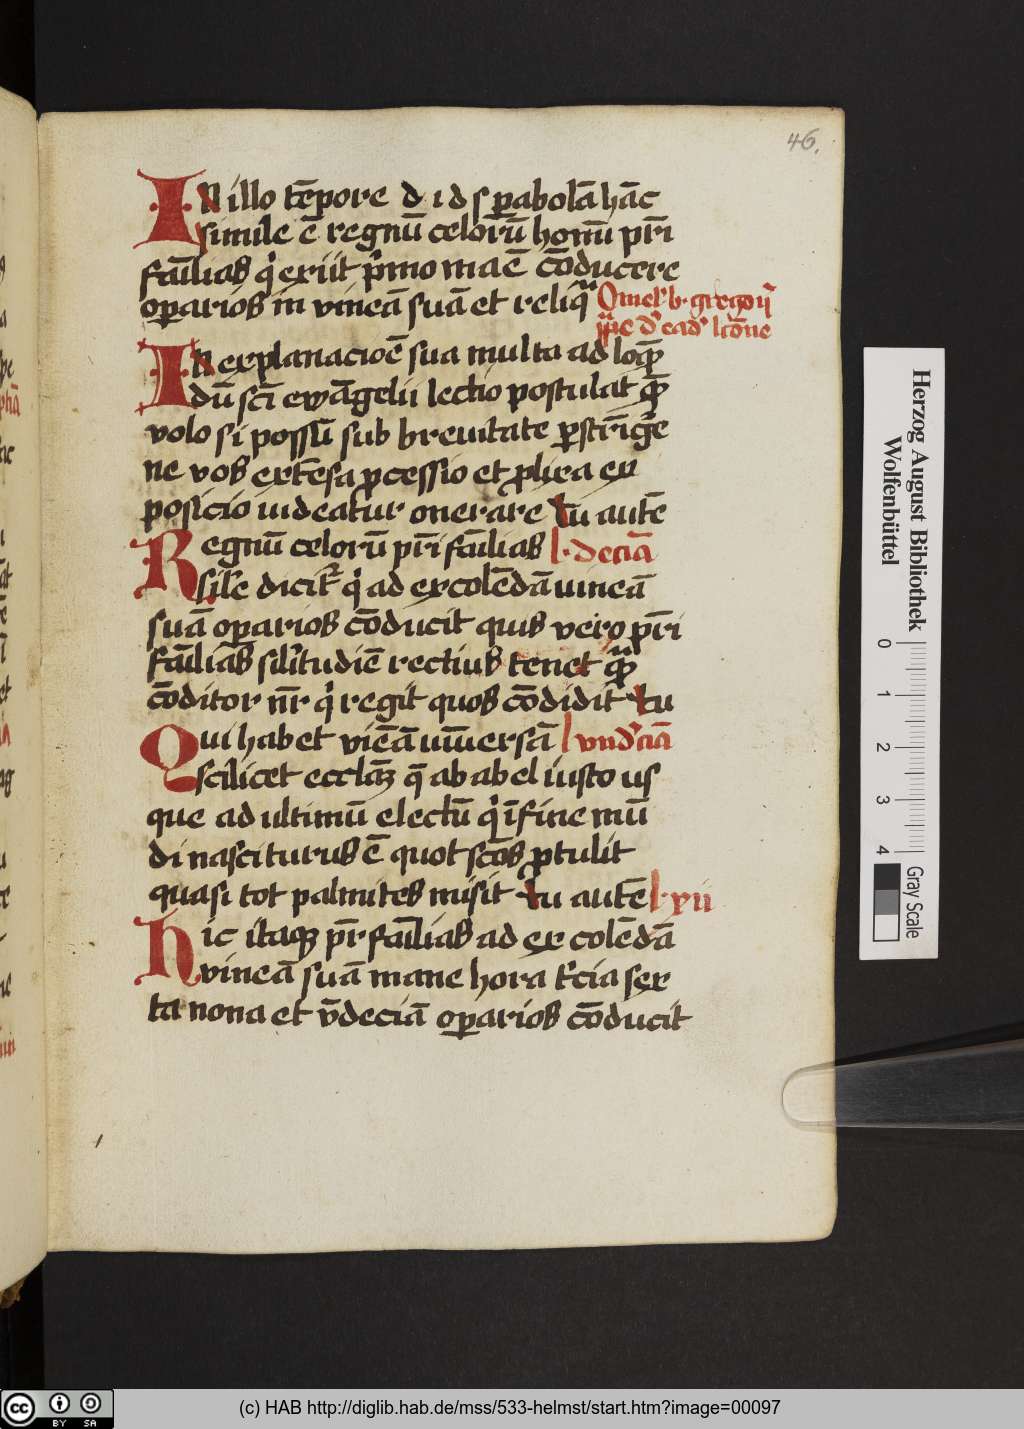 46.
IN illo tēpore d i d s ꝑabolā hāc
simile ē regnū celorū homī pr̄i
fāilias q̇ exiit p̄mo maē cōducere
oꝑarios in vineā suā et reliq̄
Omel' b. gregorij
ꝑpe d' ead' lcōne
IN explanacioē sua multa ad loq̄ꝫ
dū sc̄i ewāgelii lectio postulat qm̄
volo si possū sub breuitate ꝑstrīg̉e
ne vos extēsa ꝓcessio et ꝓlixa ex
posicio uideatur onerare tu autē
Regnū celorū pr̄i fāilias l. deciā
sil'e dicit̉ q̇ ad excolēdā uineā
suā oꝑarios cōducit quis vero pr̄i
fāilias sil'itudiē rectius tenet qm̄
cōditor nr̄ q̇ regit quos cōdidit tu
Qui habet viēā uniuersā l vnd'ciā
scilicet eccl'aꝫ q̄ ab abel iusto us
que ad ultimū electū q̇ ī fine mū
di nasciturus ē quot scōs ꝓtulit
quasi tot palmites misit tu autē l. xii
Hic itaqꝫ pr̄ fāilias ad excolēdā
vineā suā mane hora t'cia sex
ta nona et v̄deciā oꝑarios cōducit
Herzog August Bibliothek
Wolfenbüttel
0 1 2 3 4
Gray Scale
cc BY SA
(c) HAB http://diglib.hab.de/mss/533-helmst/start.htm?image=00097